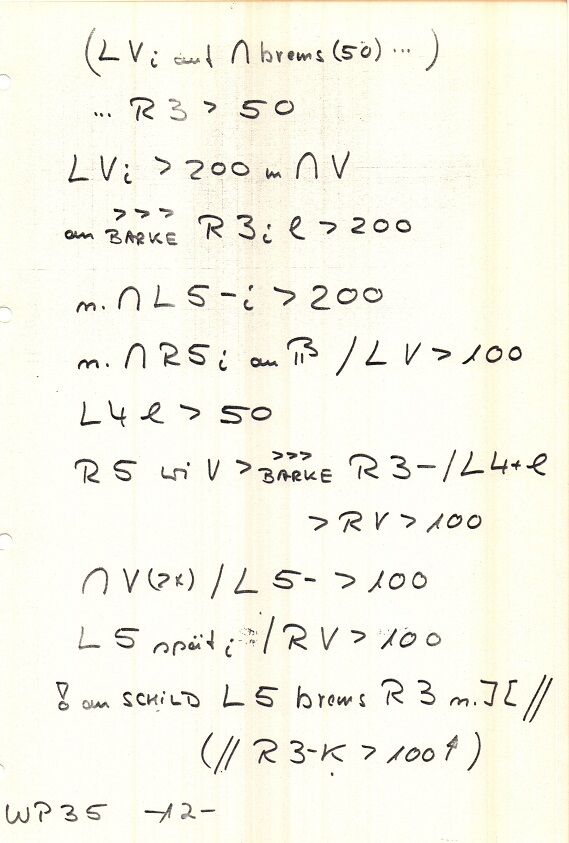 (LVi auf ∩ brems (50) ... )
... R3 > 50
LVi > 200 m ∩ V
an >>> BARKE R3i l > 200
n. ∩ L5-i > 200
n. ∩ R5i an / LV > 100
L4 l > 50
R5 wi V > >>> BARKE R3-/L4+l
> RV > 100
∩ V (2x) / L5- > 100
L5 spät i / RV > 100
! an SCHILD L5 brems R3 n. ][ //
(// R3-K > 100↑)
WP35 -12-